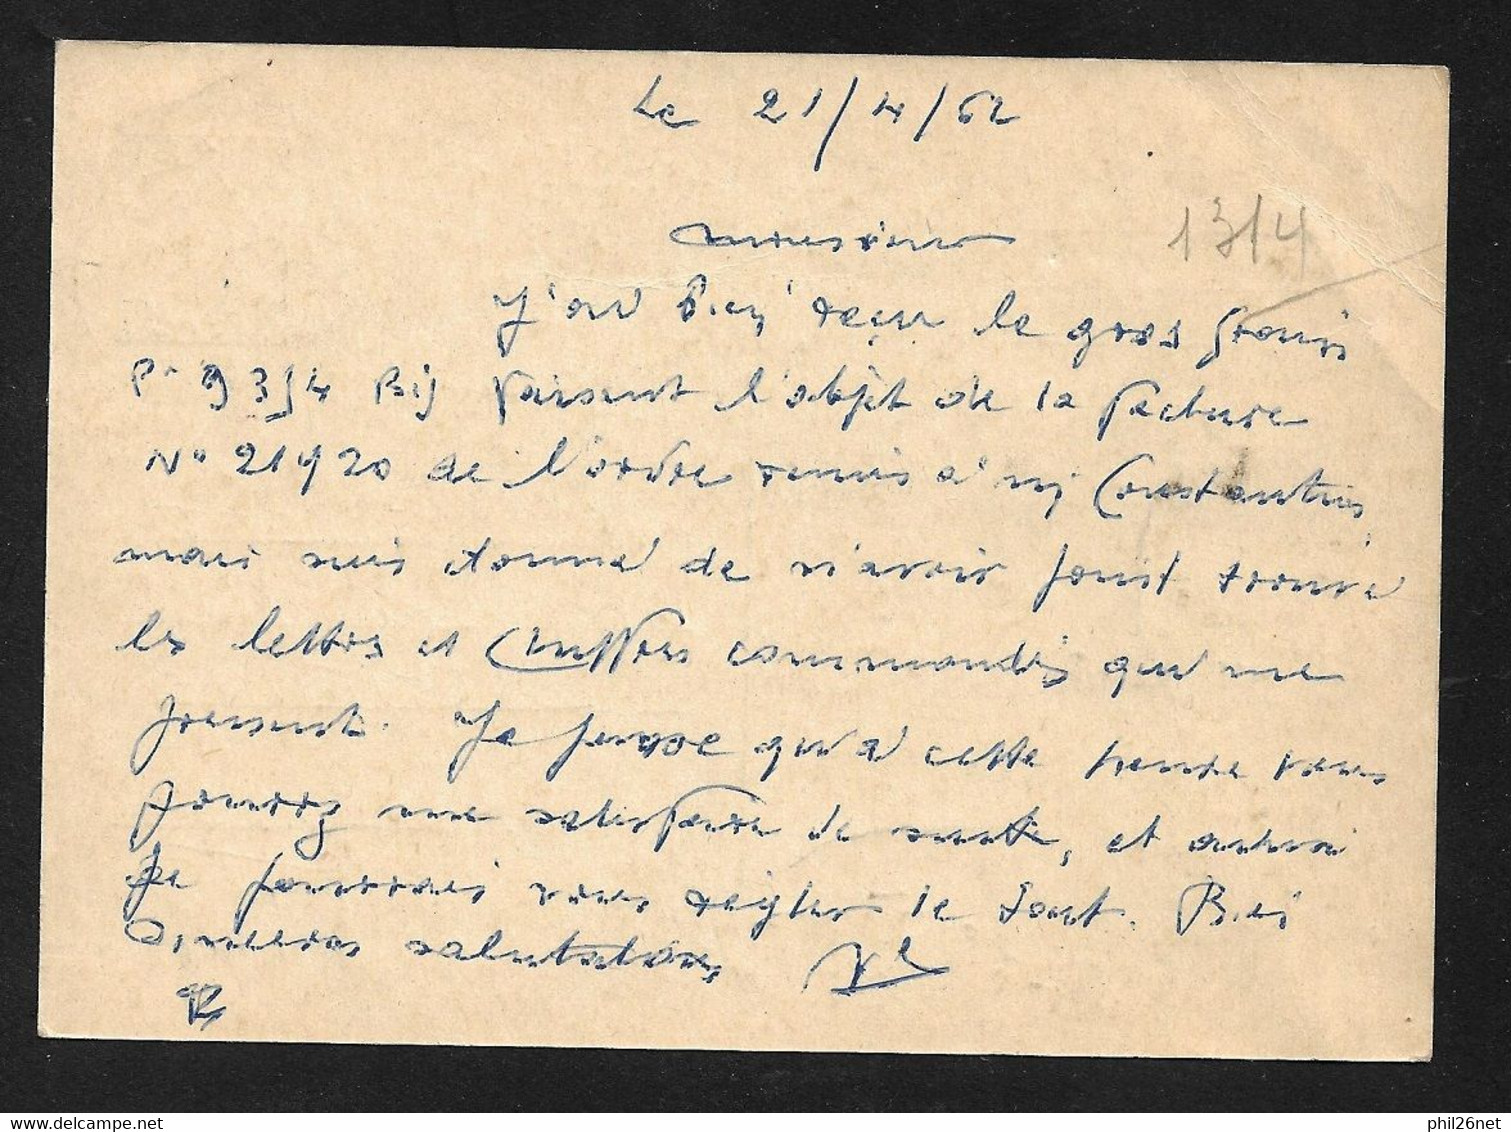 Le 21/4/62
Monsieur
1314
J'ai bien reçu le gros
faisant l'objet de la facture
N° 21920 de l'ordre remis à Mr Constantin
mais suis étonné de n'avoir point trouvé
les lettres et chiffres commandés qui me
pressent. Je pense qu'à cette heure vous
pourrez me satisfaire de suite, et ainsi
je pourrai vous régler le tout. Bien
Sincères salutations
phil26net